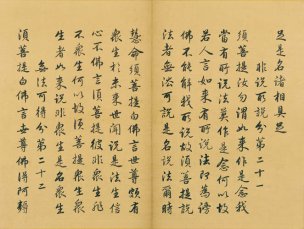 是名諸相具足
非說所說分第二十一
須菩提汝勿謂如來作是念我
當有所說法莫作是念何以故
若人言如來有所說法即為謗
佛不能解我所說故須菩提說
法者無法可說是名說法爾時
慧命須菩提白佛言世尊頗有
眾生於未來世聞說是法生信
心不佛言須菩提彼非眾生非
不眾生何以故須菩提眾生眾
生者如來說非眾生是名眾生
無法可得分第二十二
須菩提白佛言世尊佛得阿耨